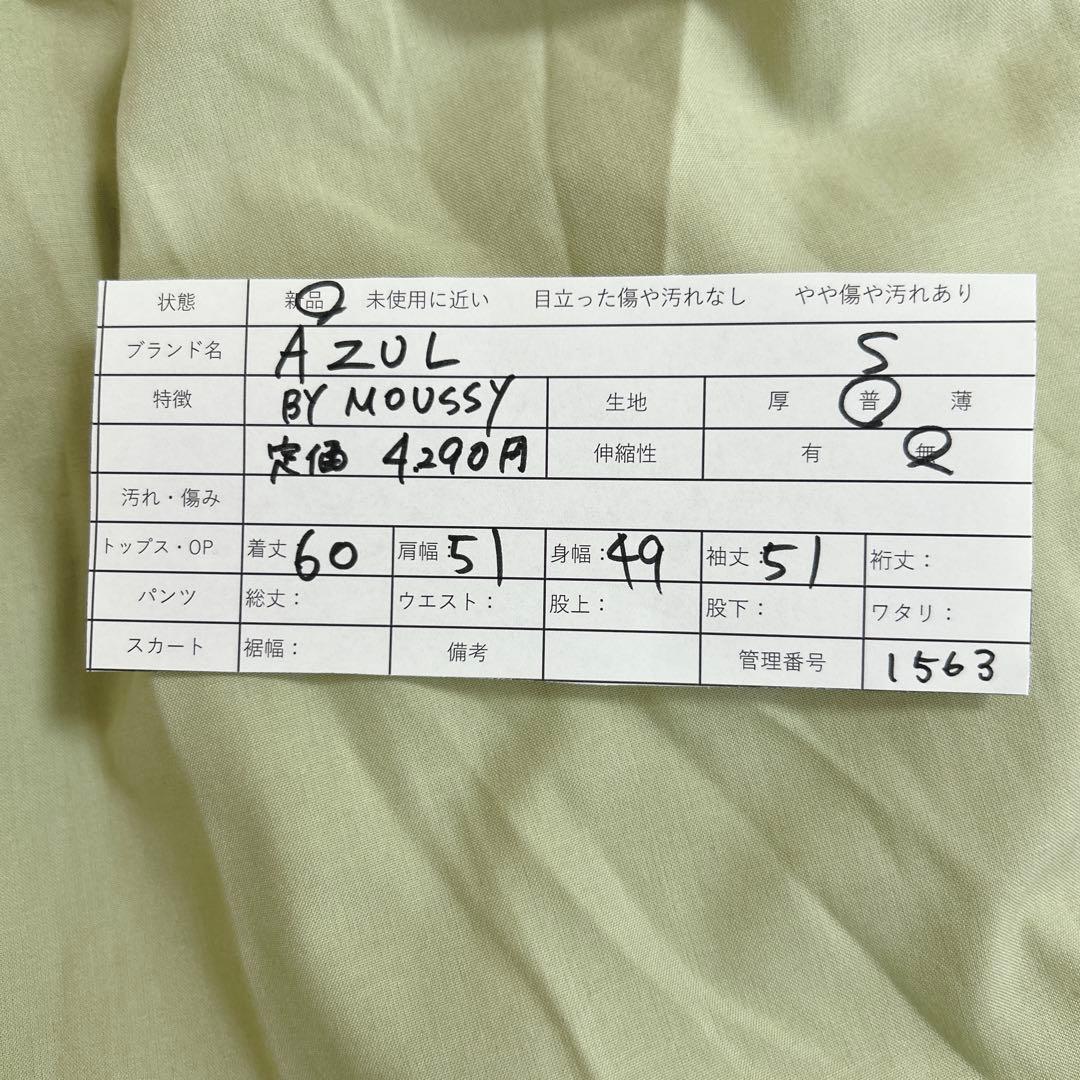 状態 新品 未使用に近い 目立った傷や汚れなし やや傷や汚れあり
ブランド名 AZUL S
特徴 BY MOUSSY 生地 厚 普 薄
定価 4,290円 伸縮性 有 無
汚れ・傷み
トップス・OP 着丈:60 肩幅:51 身幅:49 袖丈:51 裄丈:
パンツ 総丈: ウエスト: 股上: 股下: ワタリ:
スカート 裾幅: 備考 管理番号 1563